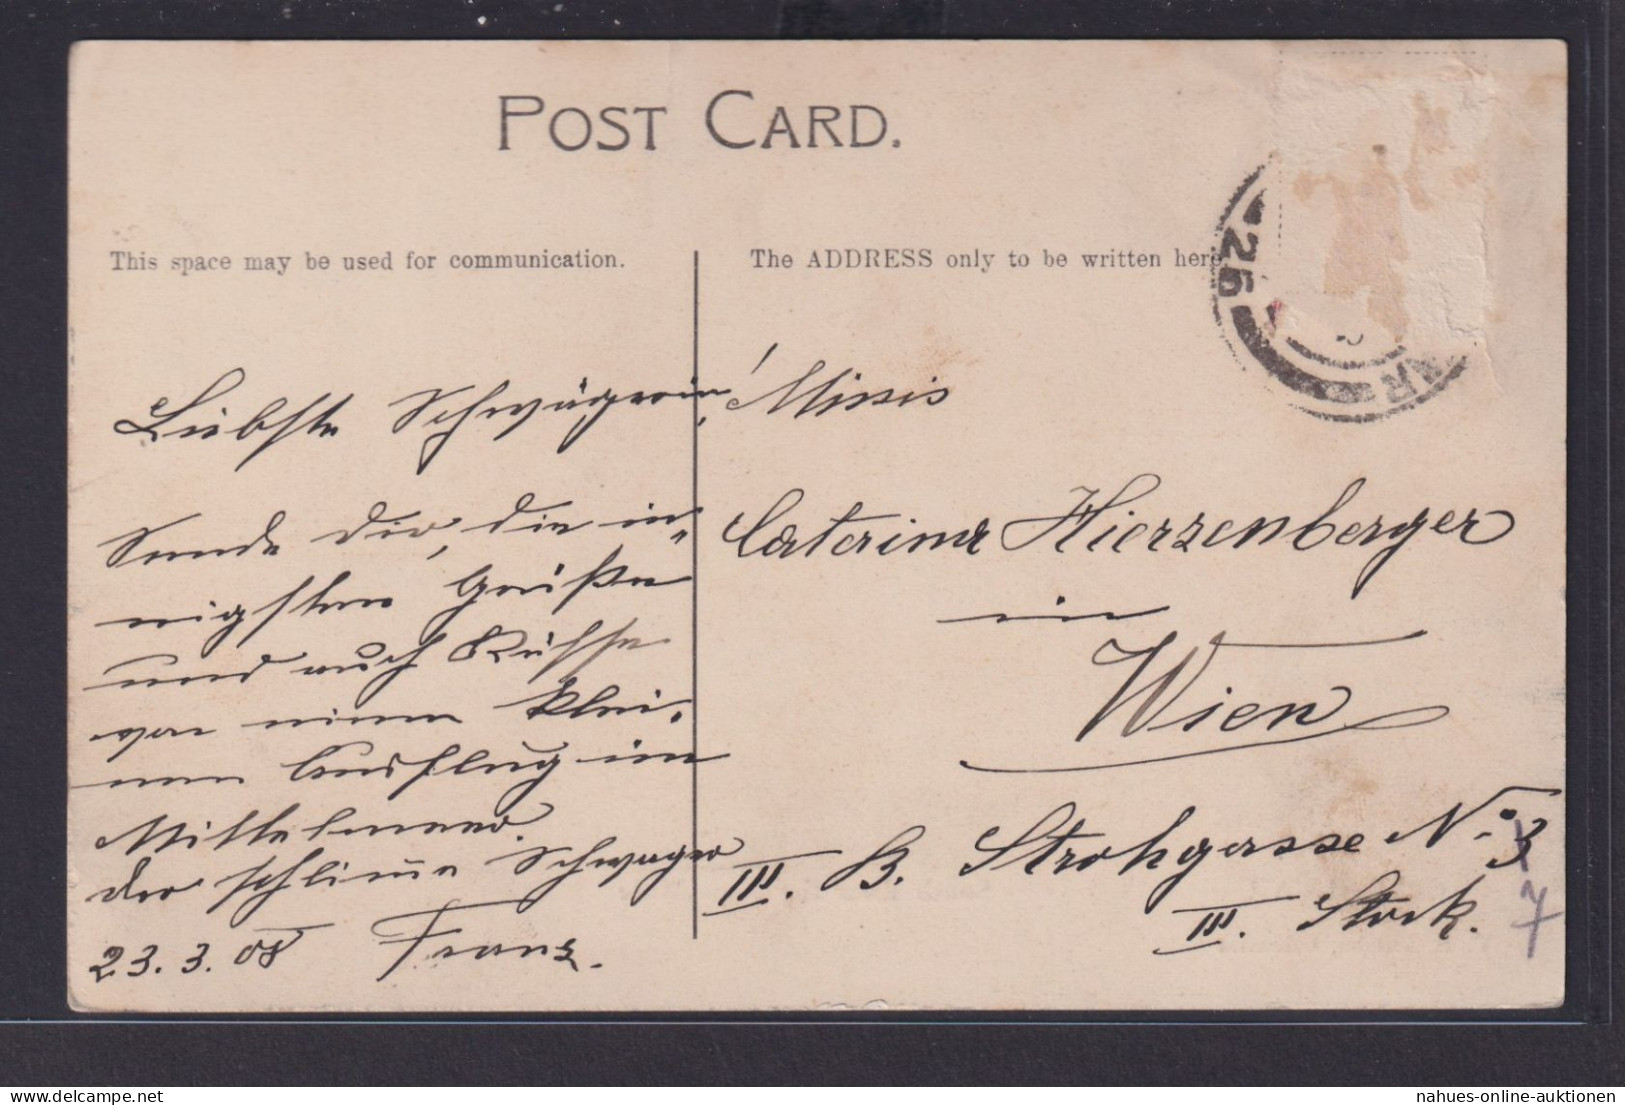 POST CARD.
This space may be used for communication.
The ADDRESS only to be written here.
25
AR
Liebste Schwägerin!
Sende Dir, die in=
nigsten Grüße
und auch Küsse
von einem klei-
nen Ausflug im
Mittelmeer.
der schlimme Schwager
23.3.08 Franz.
Missis
Caterina Hierzenberger
in
Wien
III. B. Strohgasse No. 3
7
III. Stock.
nahues-online-auktionen